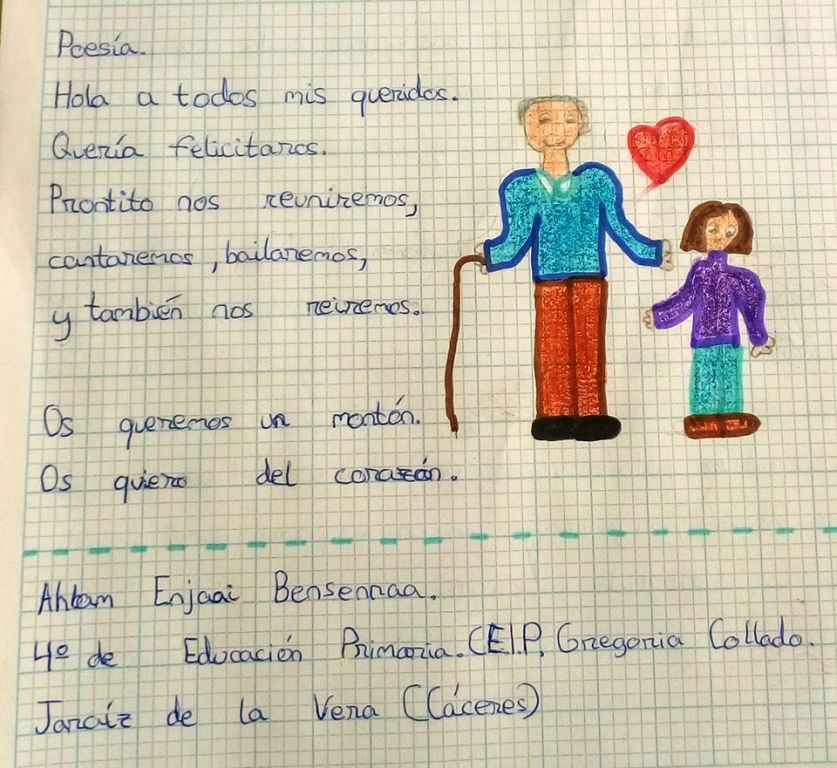 Poesía.
Hola a todos mis queridos.
Quería felicitaros.
Prontito nos reuniremos,
cantaremos, bailaremos,
y también nos reiremos.
Os queremos un montón.
Os quiero del corazón.
Ahlam Enjaai Bensennaa.
4º de Educación Primaria. C.E.I.P. Gregoria Collado.
Jaraíz de la Vera (Cáceres)